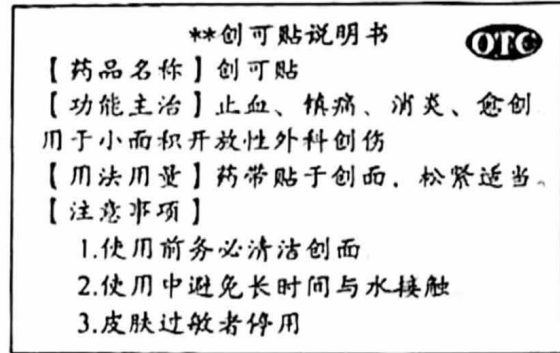 **创可贴说明书
OTC
【药品名称】创可贴
【功能主治】止血、镇痛、消炎、愈创
用于小面积开放性外科创伤
【用法用量】药带贴于创面，松紧适当。
【注意事项】
1.使用前务必清洁创面
2.使用中避免长时间与水接触
3.皮肤过敏者停用